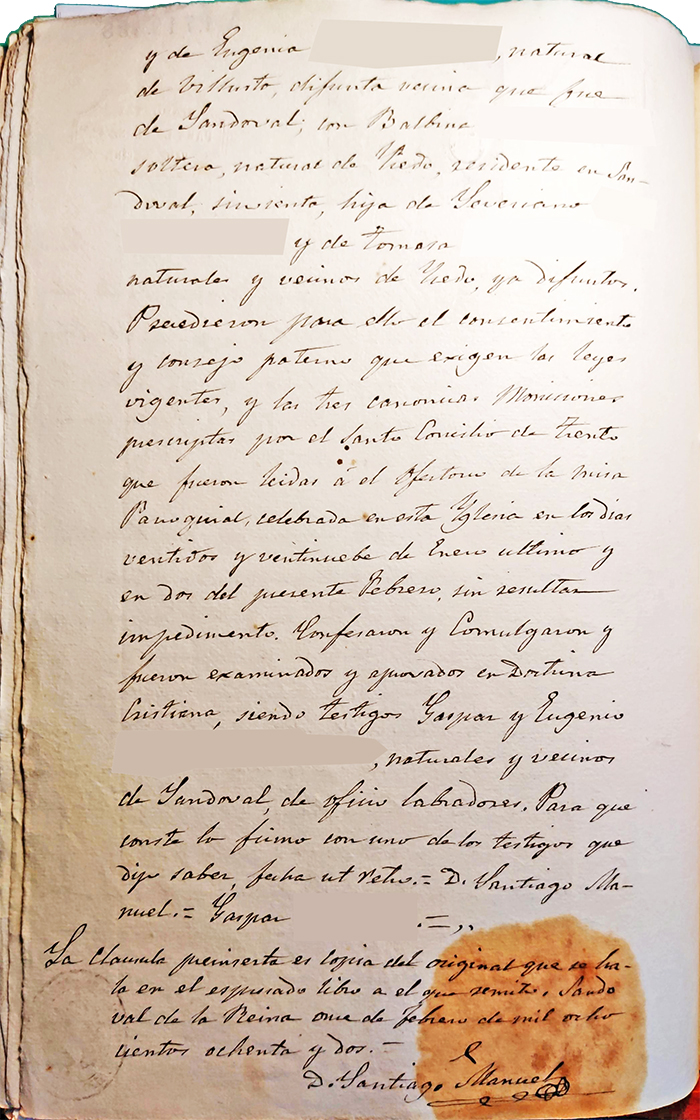 y de Eugenia , natural
de Villusto, difunta vecina que fue
de Sandoval; con Balbina
soltera, natural de Uiedo, residente en San-
doval, sirvienta, hija de Severiano
y de Tomasa
naturales y vecinos de Uiedo, ya difuntos.
Precedieron para ello el consentimiento
y consejo paterno que exigen las leyes
vigentes, y las tres canonicas Moniciones
prescriptas por el Santo Concilio de Trento
que fueron leidas á el Ofertorio de la misa
Parroquial, celebrada en esta Yglesia en los dias
ventidos y ventinuebe de Enero ultimo y
en dos del presente Febrero, sin resultar
impedimento. Confesaron y Comulgaron y
fueron examinados y aprovados en Doctrina
Cristiana, siendo testigos Gaspar y Eugenio
, naturales y vecinos
de Sandoval, de oficio labradores. Para que
conste lo firmo con uno de los testigos que
dijo saber, fecha ut retro.= D. Santiago Ma-
nuel.= Gaspar .=,,
La clausula preinserta es copia del original que se ha-
la en el espresado libro a el que remito. Sando
val de la Reina once de febrero de mil ocho
cientos ochenta y dos.=
D. Santiago Manuel